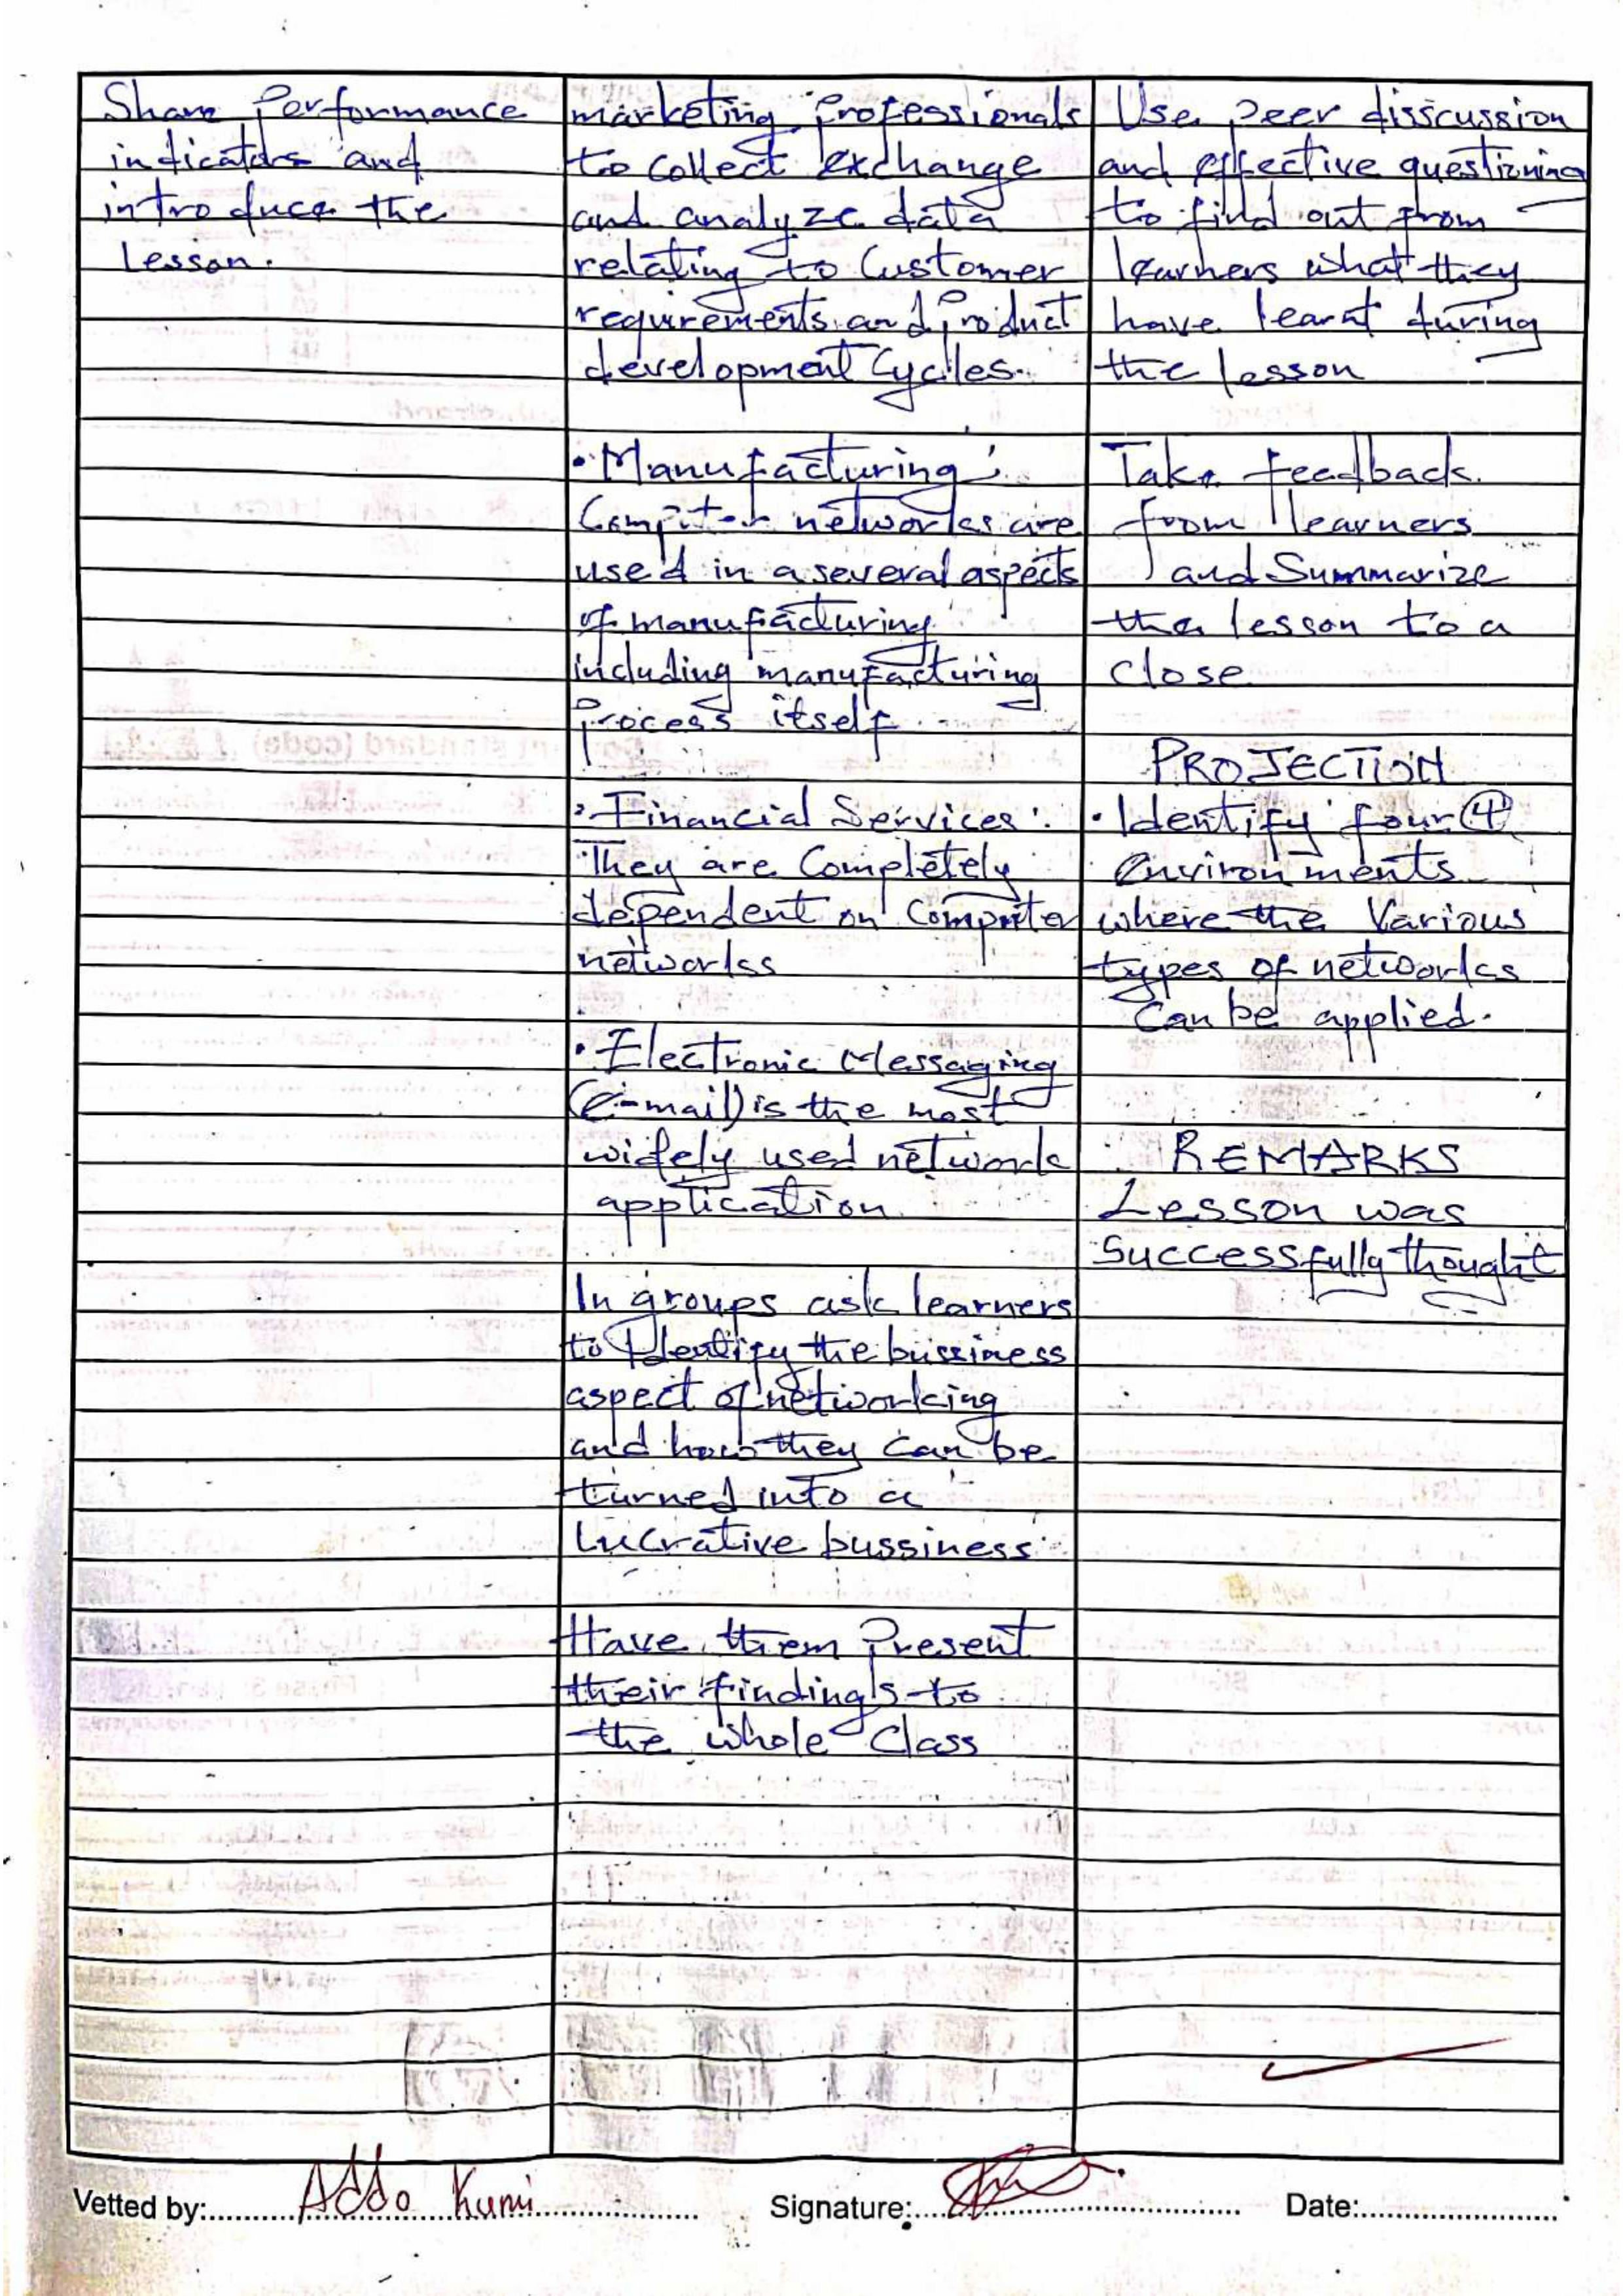 Share Performance
indicators and
introduce the
Lesson.
marketing Professionals
to collect exchange
and analyze data
relating to Customer
requirements and Product
development Cycles.
• Manufacturing:
Computer networks are
used in a several aspects
of manufacturing
including manufacturing
Process itself
• Financial Services:
They are Completely
dependent on Computer
networks
• Electronic Messaging
(e-mail) is the most
widely used network
application
In groups ask learners
to Identify the bussiness
aspect of networking
and how they can be
turned into a
Lucrative bussiness
Have them Present
their findings to
the whole Class
Use peer disscussion
and effective questioning
to find out from
learners what they
have learnt during
the lesson
Take feedback
from learners
and Summarize
the lesson to a
close
PROJECTION
• Identify four (4)
environments
where the Various
types of networks
Can be applied.
REMARKS
Lesson was
Successfully thought
Vetted by: Addo Kumi Signature: Date: